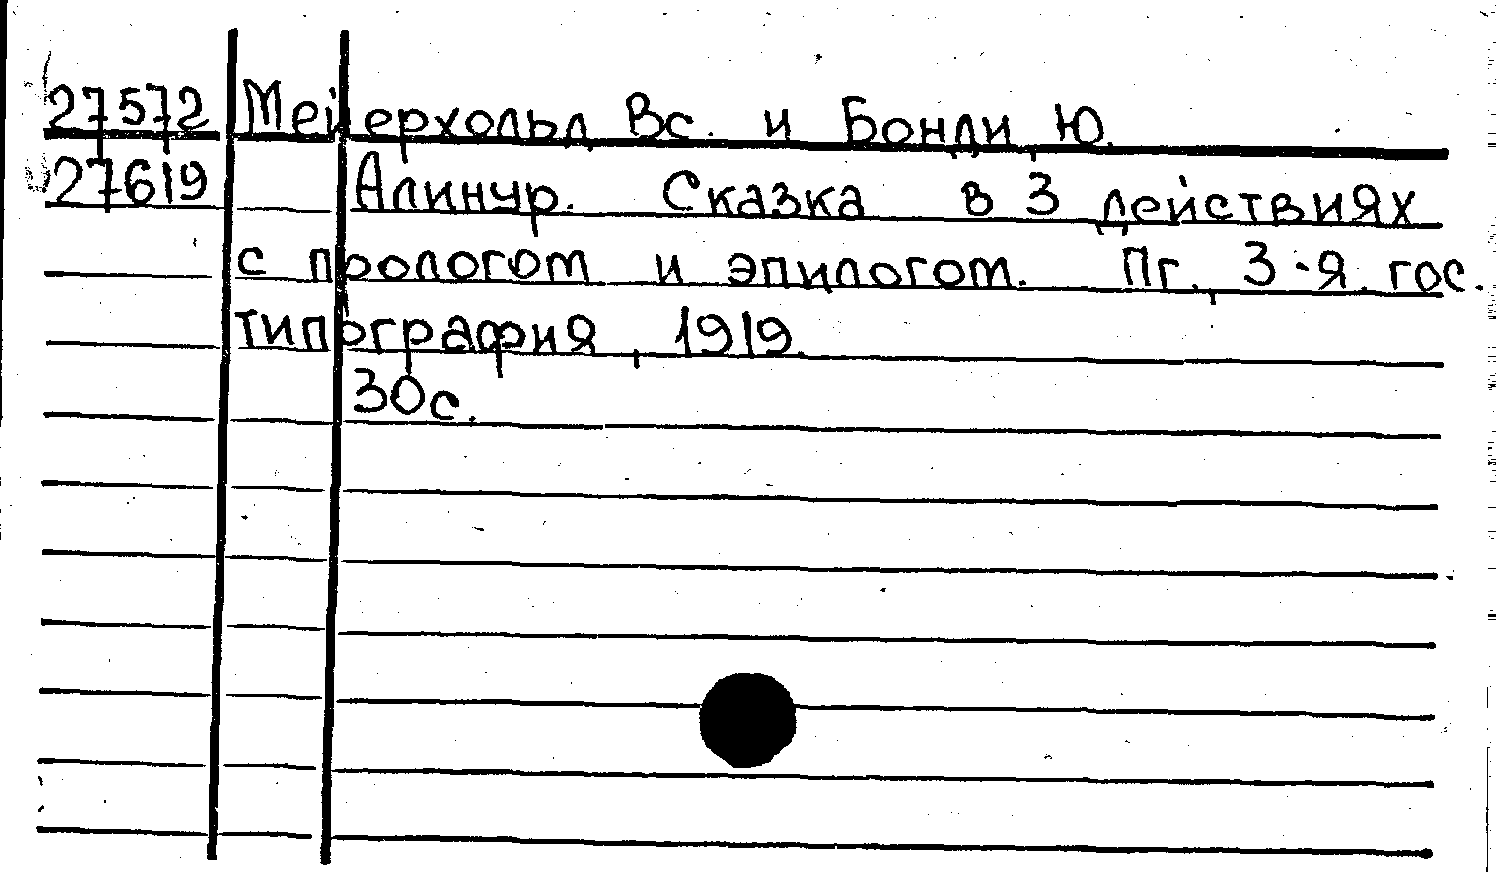 27572 Мейерхольд Вс. и Бонди, Ю.
27619 Алинур. Сказка в 3 действиях
с прологом и эпилогом. Пг., 3-я гос.
типография, 1919.
30 с.